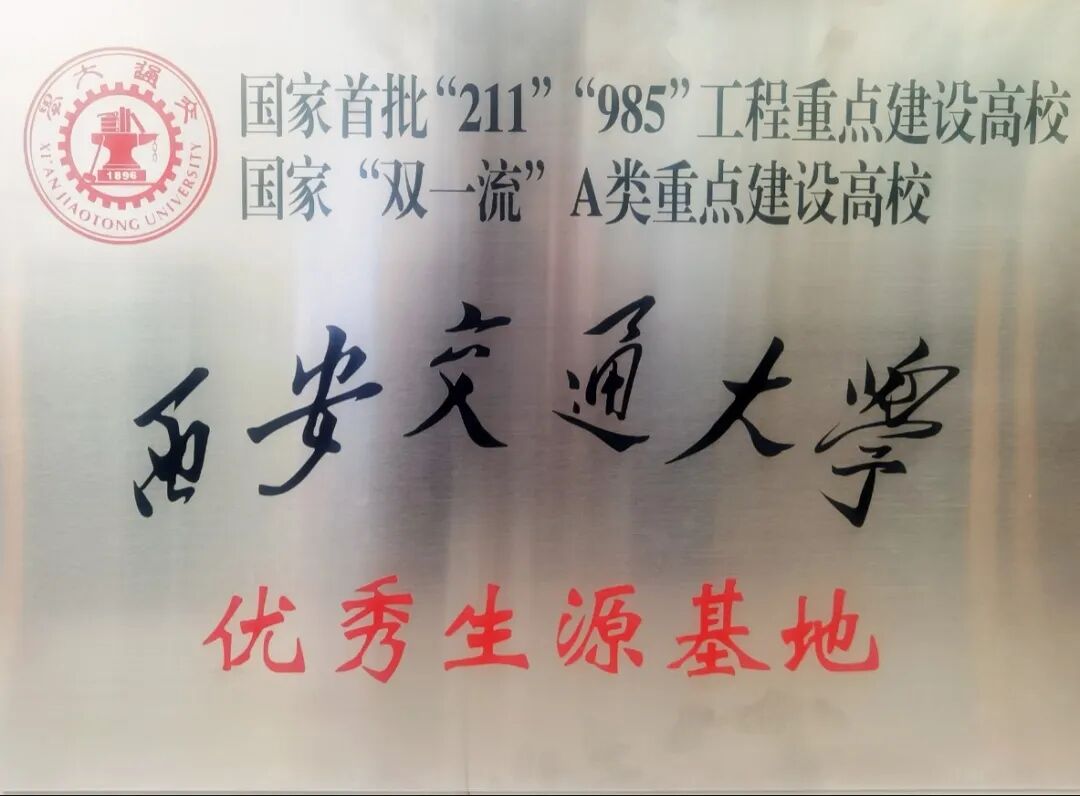 国家首批“211”“985”工程重点建设高校
国家“双一流”A类重点建设高校
西安交通大学
优秀生源基地
交通大学
XI'AN JIAOTONG UNIVERSITY
1896